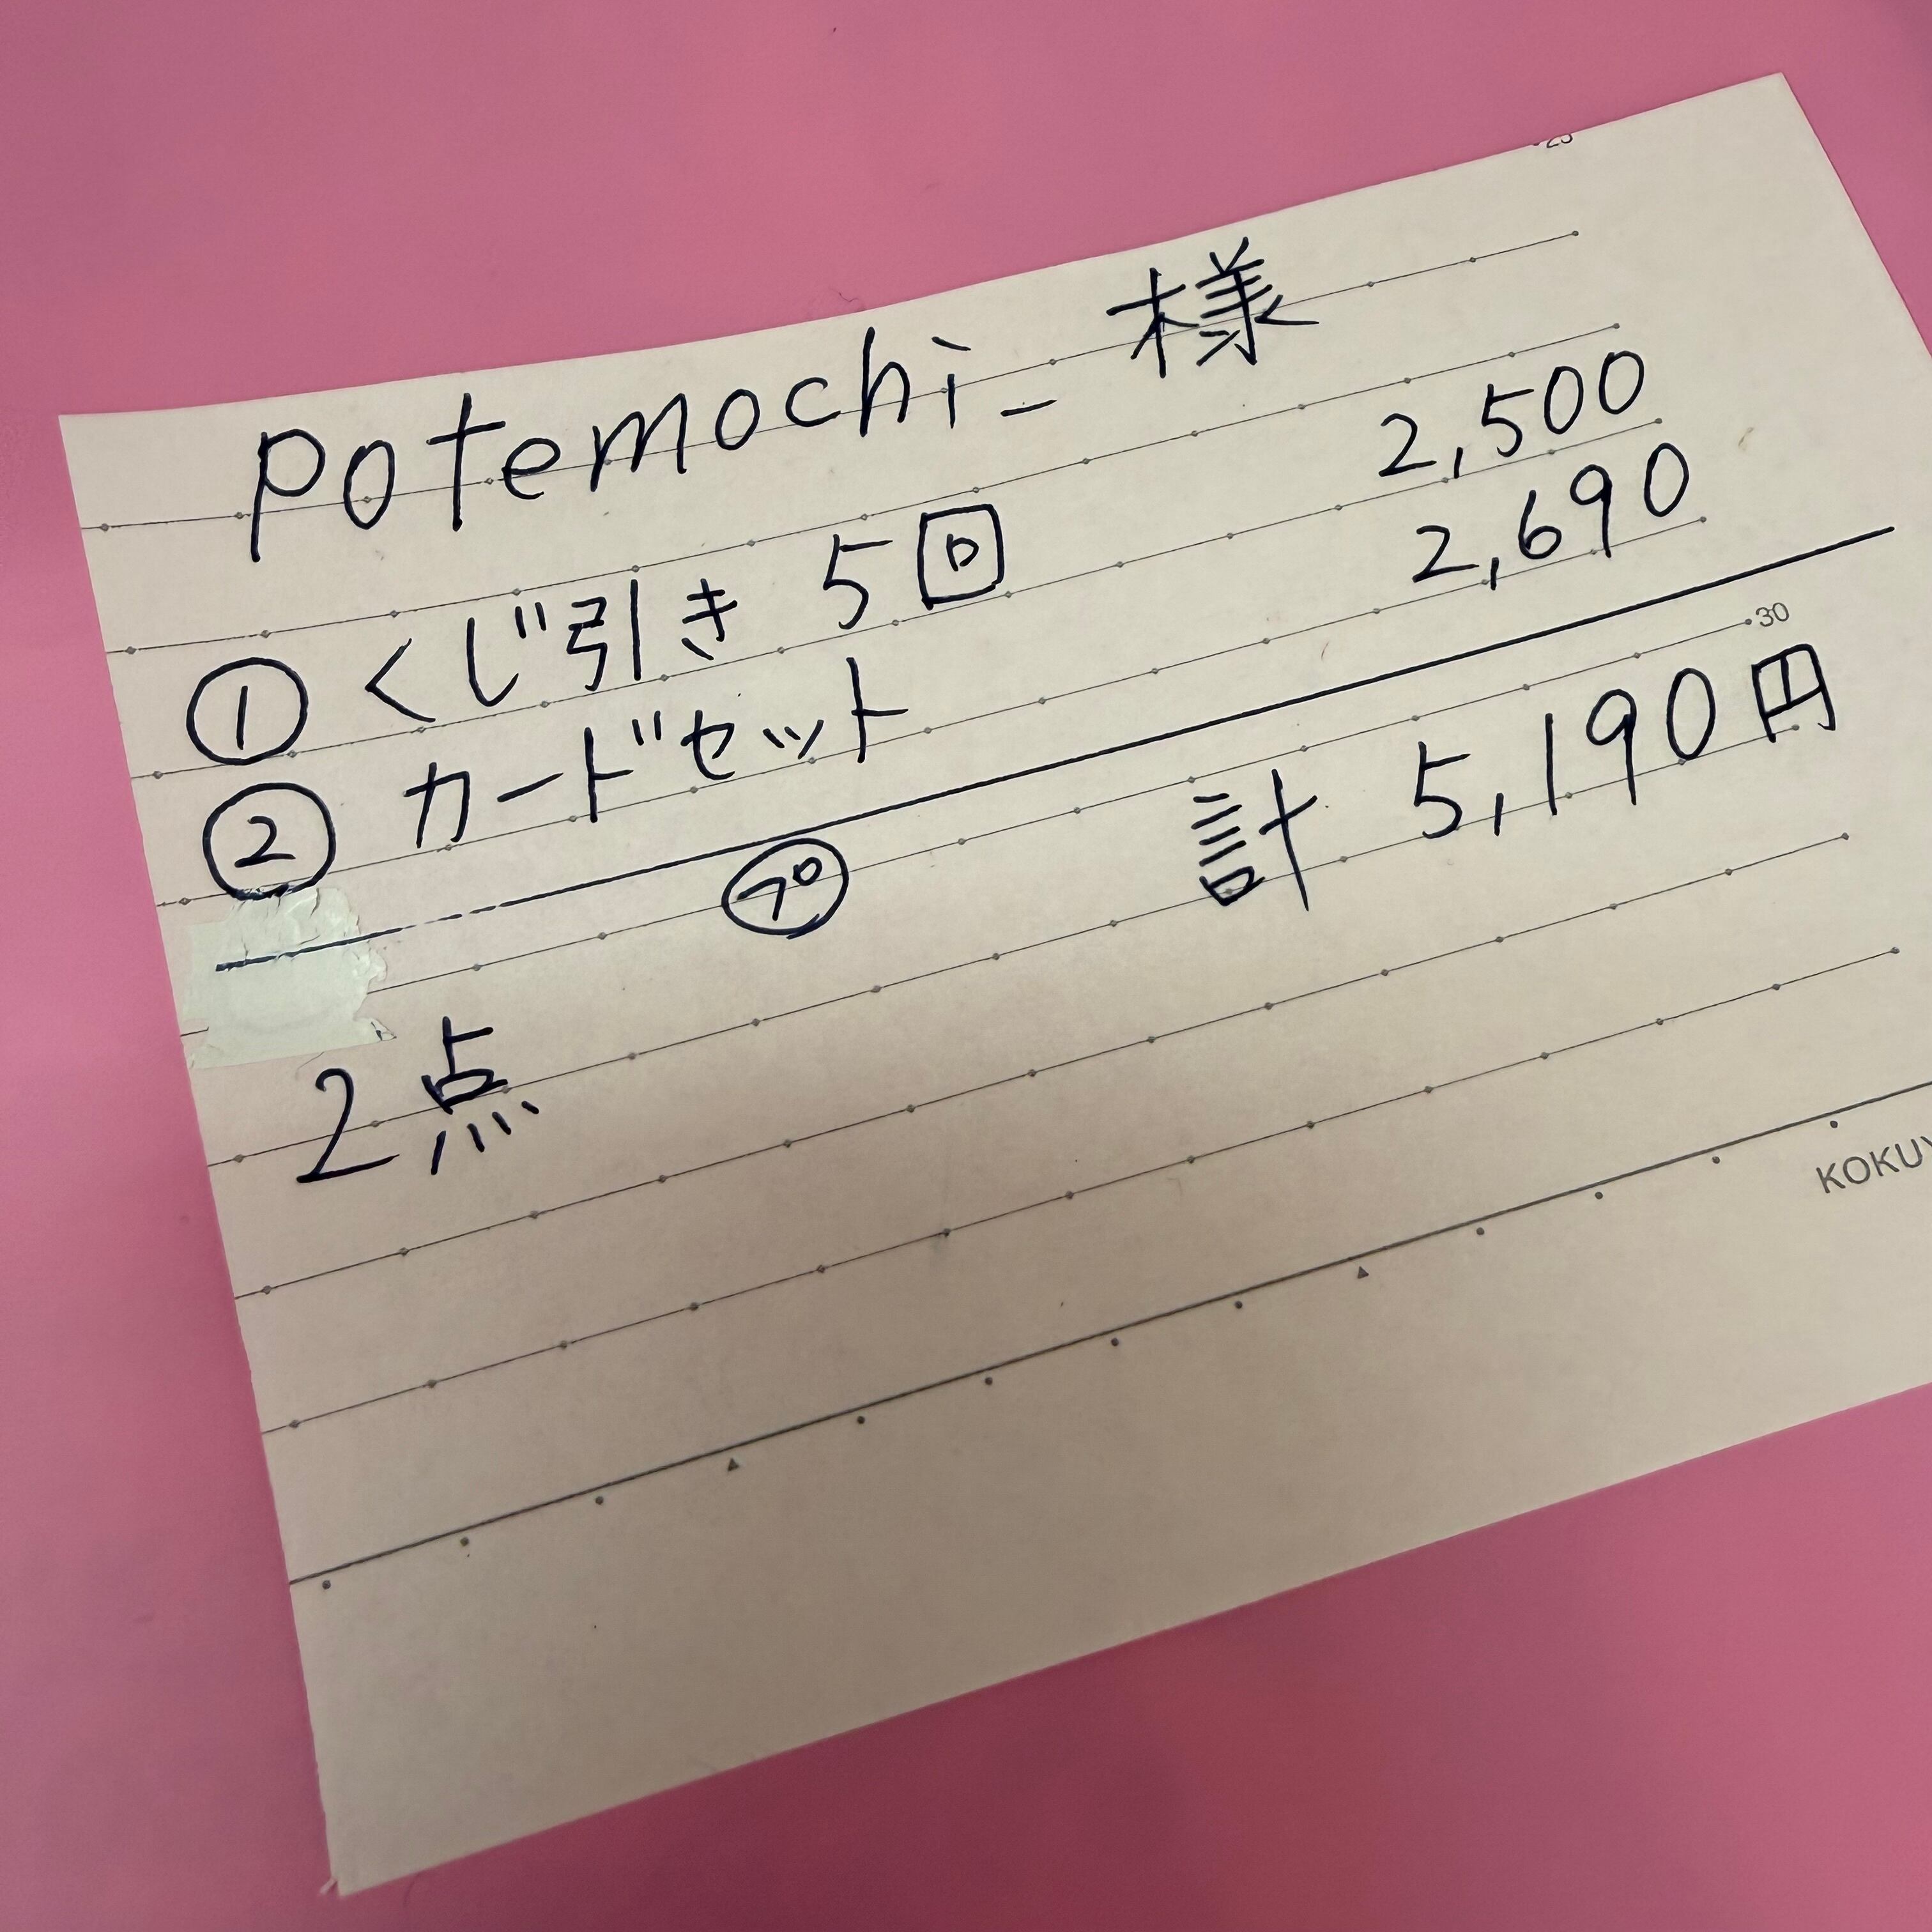 potemochi_ 様
① くじ引き 5回 2,500
② カードセット 2,690
㋫゜ 計 5,190円
2点
30